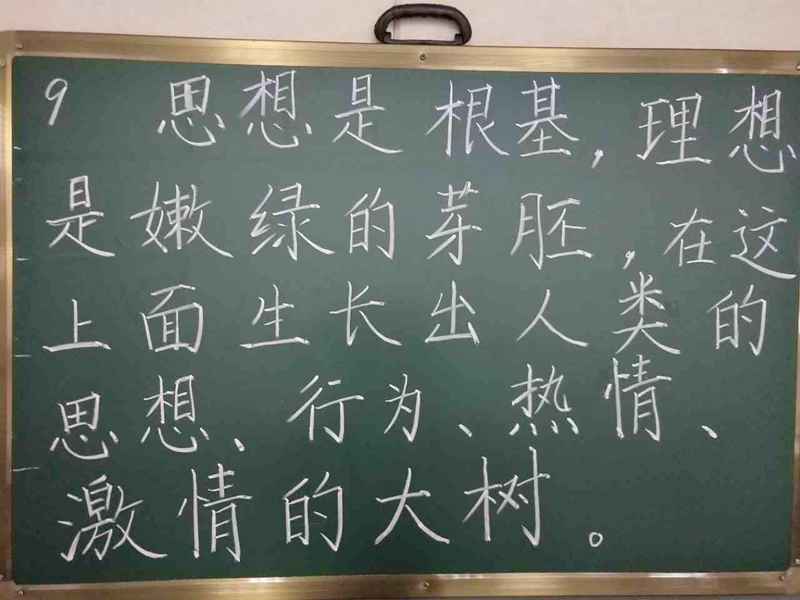 9 思想是根基，理想
是嫩绿的芽胚，在这
上面生长出人类的
思想、行为、热情、
激情的大树。